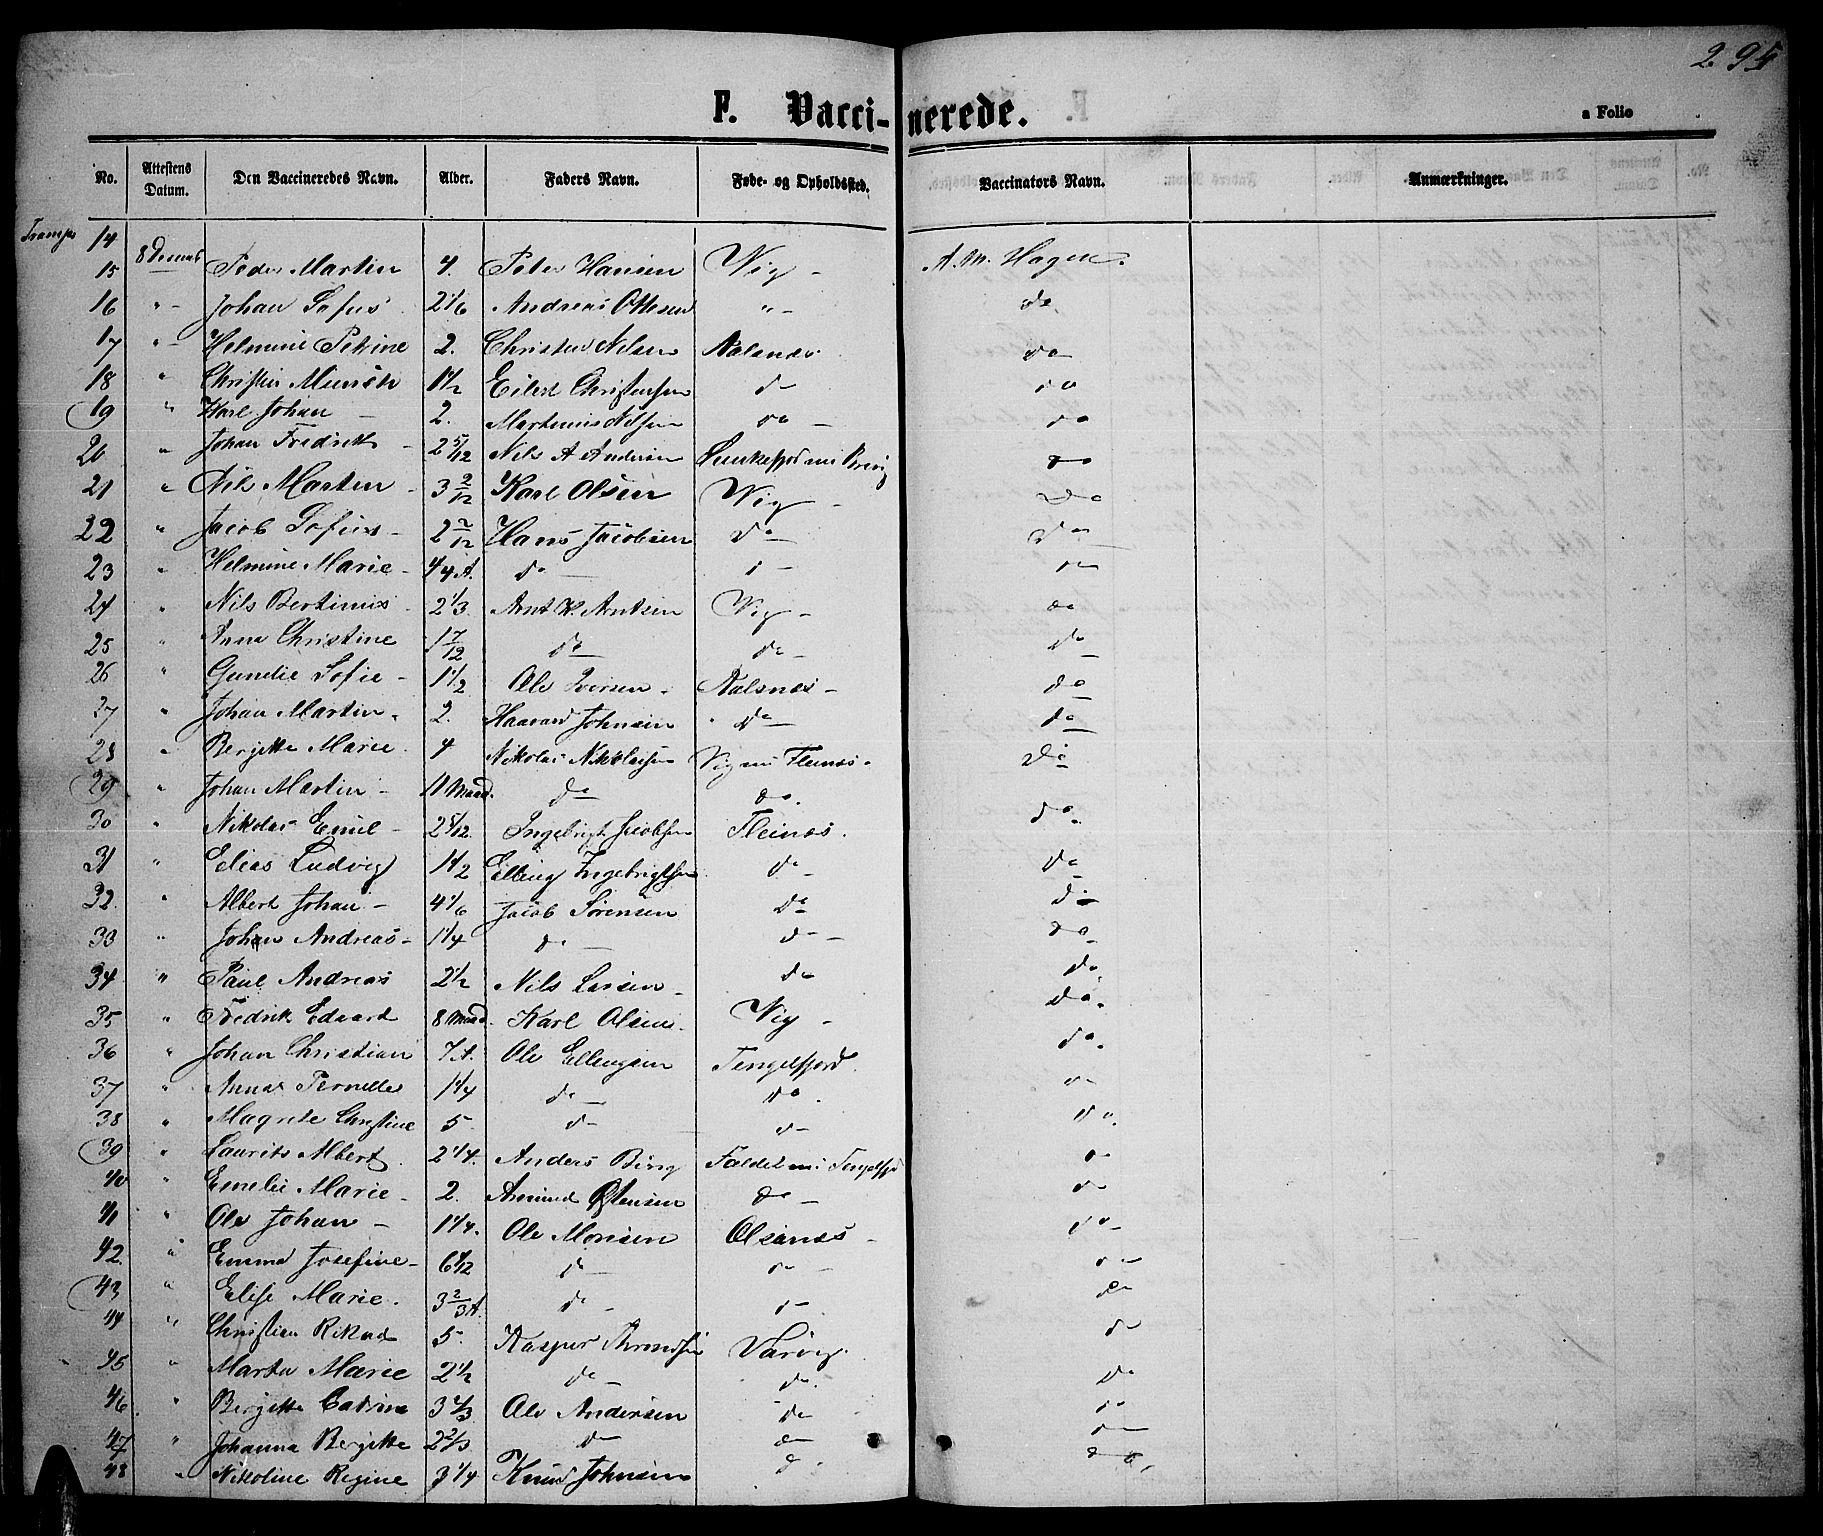 295
F. Vaccinerede.
a Folio
No. Attestens Datum. Den Vaccineredes Navn. Alder. Faders Navn. Føde- og Opholdssted. Vaccinators Navn. Anmærkninger.
14
15 Peder Martin 4. Peter Hansen Vig - A. M. Hagen.
16 " - Johan Sofus 2 1/6 Andreas Ottesen " - do.
17 " - Helmine Petrine 2. Christen Nilsen Aalsnæs do
18 " Christin 1 1/2 Eilert Christensen do do
19 " Karl Johan - 2. Martinus Nilsen do - do
20 " Johan Fredrik - 2 5/12 Nils A Andersen do
21 " Nils Martin - 3 2/12 Karl Olsen Vig - do
22 " Jacob Sofus - 2 2/12 Hans Jacobsen do do
23 " Helmine Marie - 4/4 A. do - do do
24 " Nils Bertinus - 2 1/3 Arnt K. Arntsen Vig - do
25 " Anna Christine 1 7/12 do do - do
26 " Gunelie Sofie - 1 1/2 Ole Iversen - Aalsnæs - do
27 " Johan Martin - 2. Haavard Johnsen " do do
28 " Bergitte Marie 4 Nikolai Nikolaisen Vig nu Fleinæs - do
29 " Johan Martin - 11 Maad. do do. do
30 " Nikolai Emil - 2 5/12 Ingebrigt Jacobsen Fleinæs. do.
31 " Elias Ludvig 1 1/2 Elling Ingebrigtsen do - do
32. " Albert Johan - 4 1/6 Jacob Sørensen do do
33 " Johan Andreas - 1 1/4 do - do - do.
34 " Paul Andreas 2 1/2 Nils Larsen - do do.
35 " Fredrik Edvard 8 Maad. Karl Olsen. Vig - do.
36 " Johan Christian 7 A. Ole Ellingsen Tengelfjord. do.
37 " Anna Pernille 1 1/4 do - do. do
38 " Magrete Christine 5 do - do - do.
39 " Laurits Albert 2 1/4. Anders Bing Faldet nu Tengelfjd do
40 " Emelie Marie - 2. Amund Østensen do - do
41 " Ole Johan - 1 1/4. Ole Monsen Olsanæs - do
42. " Emma Josefine - 6 1/12 do - do - do
43 " Elise Marie. 3 2/3 A. do - do do
44 " Christian Rikard 5. Kasper Arentsen Varvig. do
45 " Marta Marie 2 1/2 do - do. do
46 " Bergitte Catrine 3 2/3 Ole Andersen do do
47 " Johanna Bergitte 2 2/3 do do do
48 " Nikoline Regine 3 1/4 Knud Johnsen do do,